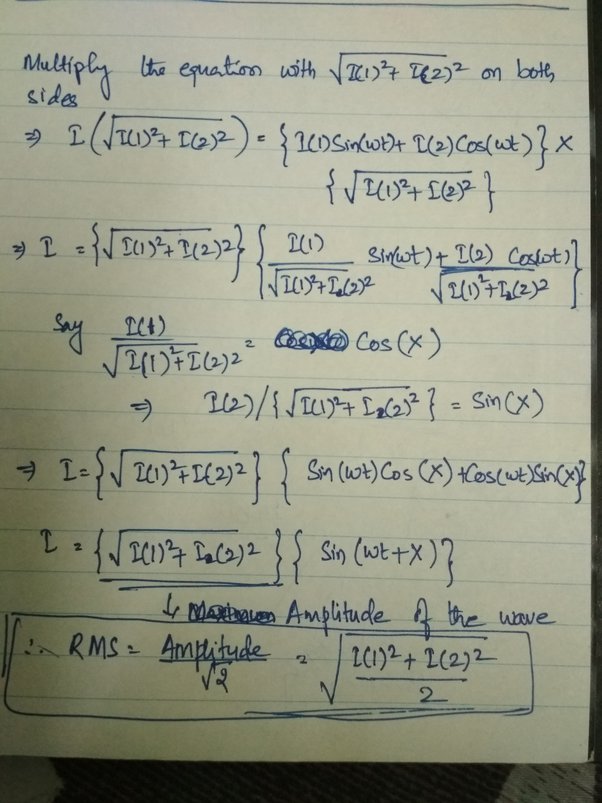 Multiply the equation with √I(1)²+ I(2)² on both
sides
⇒ I (√I(1)²+ I(2)²) = { I(1)Sin(wt)+ I(2)Cos(wt) } ×
{ √I(1)²+ I(2)² }
⇒ I = {√I(1)²+I(2)²} { I(1)/√I(1)²+I₂(2)² Sin(wt) + I(2)/√I(1)²+I₂(2)² Cos(wt) }
Say I(1)/√I(1)²+I(2)² = Cos(X)
⇒ I(2)/{√I(1)²+ I₂(2)²} = Sin(X)
⇒ I={√I(1)²+I(2)²} { Sin(wt)Cos(X)+Cos(wt)Sin(X)}
I = {√I(1)²+ I₂(2)² } { Sin (wt+X) }
↓ Amplitude of the wave
∴ RMS = Amplitude/√2 = √I(1)² + I(2)²/2